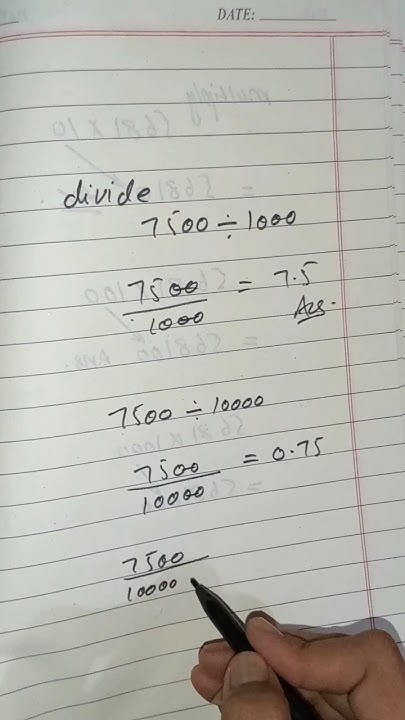 DATE:
divide
7500 ÷ 1000
7500
1000
= 7.5
Ans.
7500 ÷ 10000
7500
10000
= 0.75
7500
10000